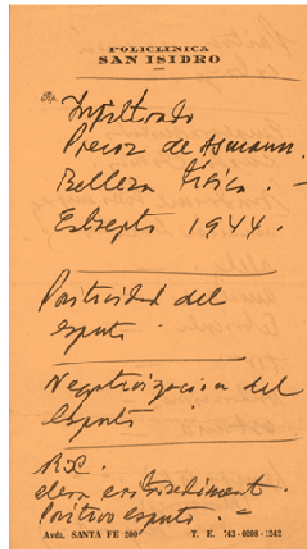 POLICLINICA
SAN ISIDRO
Rp.
Infiltrado
Precoz de Assmann.
Belleza física. -
Estrepto 1944.
Positividad del
esputo.
Negativización del
esputo
RX.
eritrosedimento.
Positivo esputo. -
Avda. SANTA FE 300 T. E. 743-0008-1242